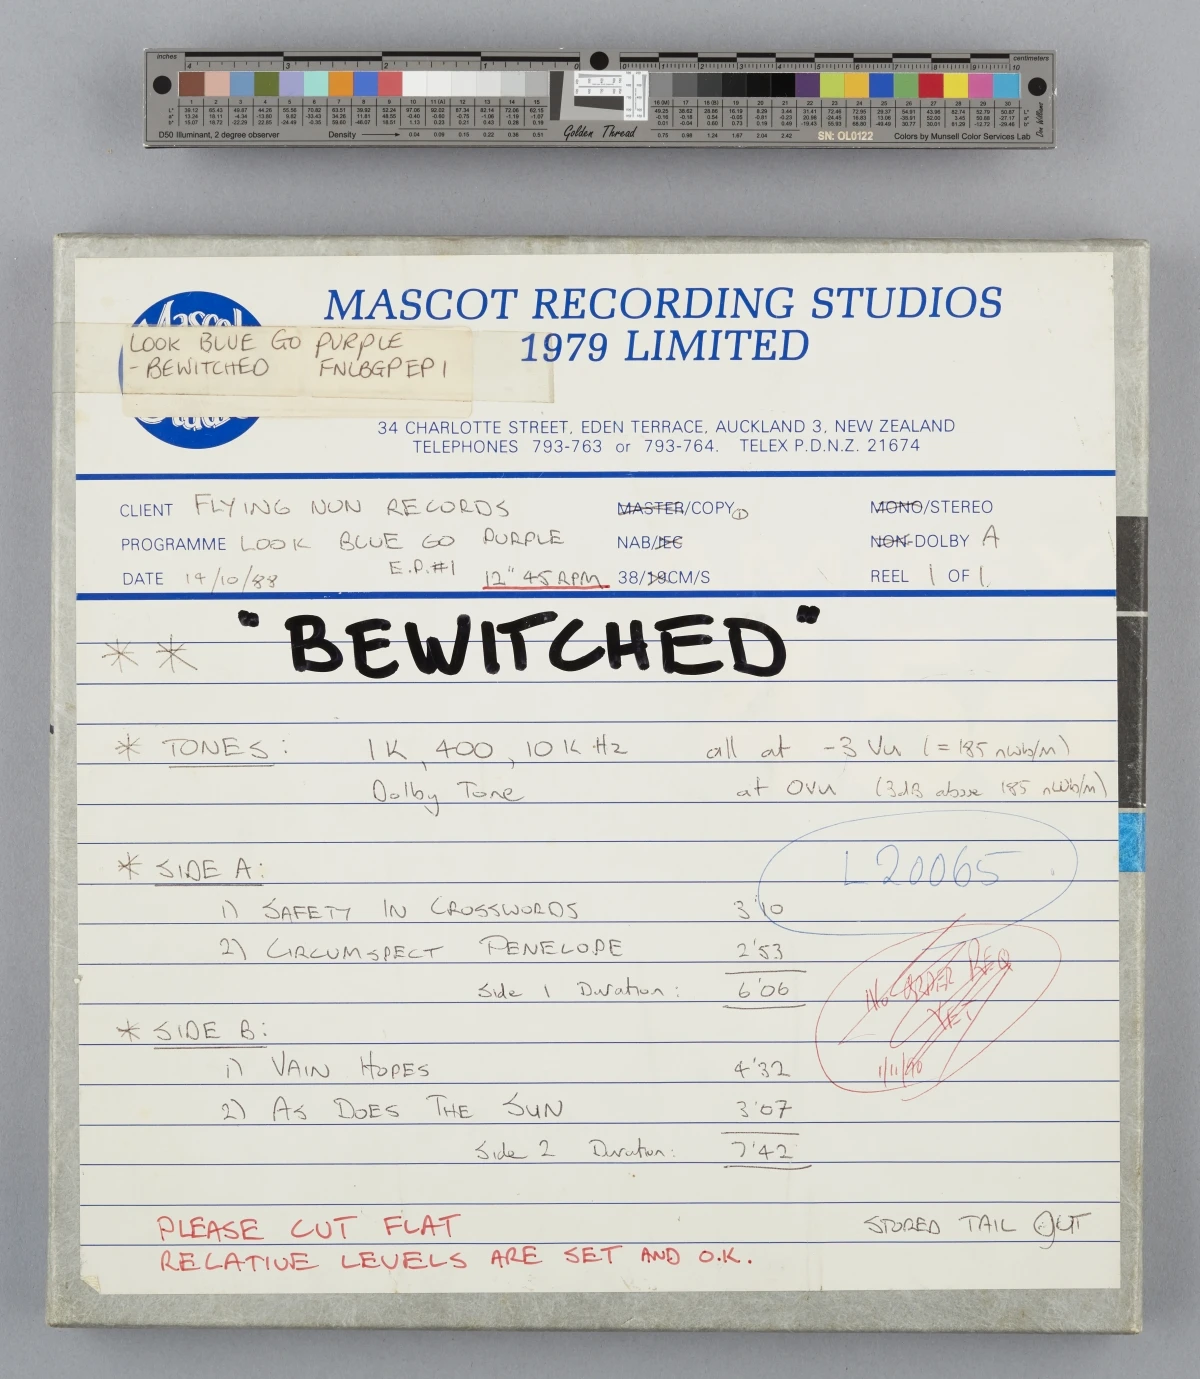 inches
centimeters
D50 Illuminant, 2 degree observer
Density
Golden Thread
SN: OL0122
Colors by Munsell Color Services Lab
MASCOT RECORDING STUDIOS
1979 LIMITED
LOOK BLUE GO PURPLE
- BEWITCHED FNLBGPEP1
34 CHARLOTTE STREET, EDEN TERRACE, AUCKLAND 3, NEW ZEALAND
TELEPHONES 793-763 or 793-764. TELEX P.D.N.Z. 21674
CLIENT FLYING NUN RECORDS MASTER/COPY 1 MONO/STEREO
PROGRAMME LOOK BLUE GO PURPLE NAB/IEC NON-DOLBY A
E.P.#1
DATE 14/10/88 12" 45 RPM 38/19CM/S REEL 1 OF 1
"BEWITCHED"
* *
* TONES: 1K, 400, 10K Hz all at -3 Vu (= 185 nWb/m)
Dolby Tone at 0Vu (3dB above 185 nWb/m)
L20065
* SIDE A:
1) SAFETY IN CROSSWORDS 3'10
2) CIRCUMSPECT PENELOPE 2'53
Side 1 Duration: 6'06
NO ORDER REQ
YET
1/11/90
* SIDE B:
1) VAIN HOPES 4'32
2) AS DOES THE SUN 3'07
Side 2 Duration: 7'42
PLEASE CUT FLAT
RELATIVE LEVELS ARE SET AND O.K.
STORED TAIL OUT